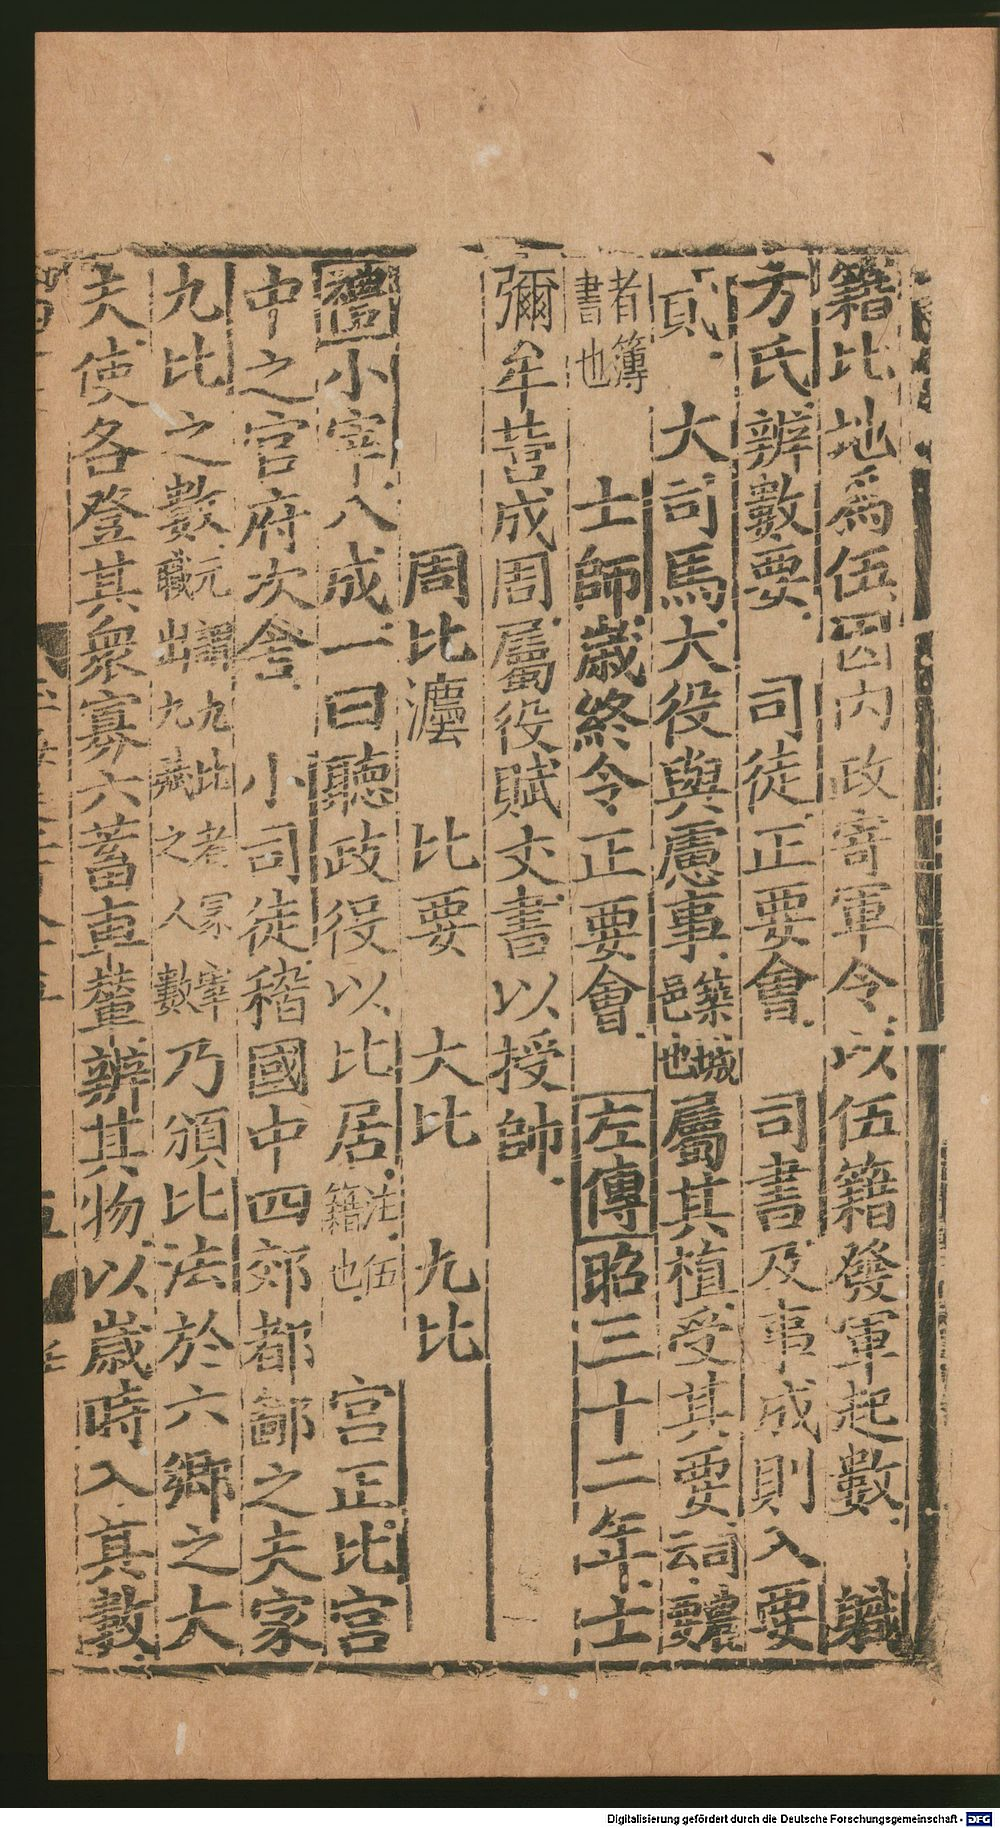 籍比地爲伍因内政寄軍令以伍籍發軍起數　職
方氏辨數要　司徒正要會　司書及事成則入要
貳　大司馬大役與慮事築城邑也屬其植受其要
者簿書也　士師歲終令正要會　左傳昭三十二年士
彌牟營成周屬役賦丈書以授帥
周比灋　比要　大比　九比
禮小宰八成一曰聽政役以比居注伍籍也　宫正比宫
中之官府次舍　小司徒稽國中四郊都鄙之夫家
九比之數元謂九比者冢宰職出九賦之人數乃頒比法於六鄉之大
夫使各登其衆寡六畜車輦辨其物以歲時入其數
Digitalisierung gefördert durch die Deutsche Forschungsgemeinschaft - DFG